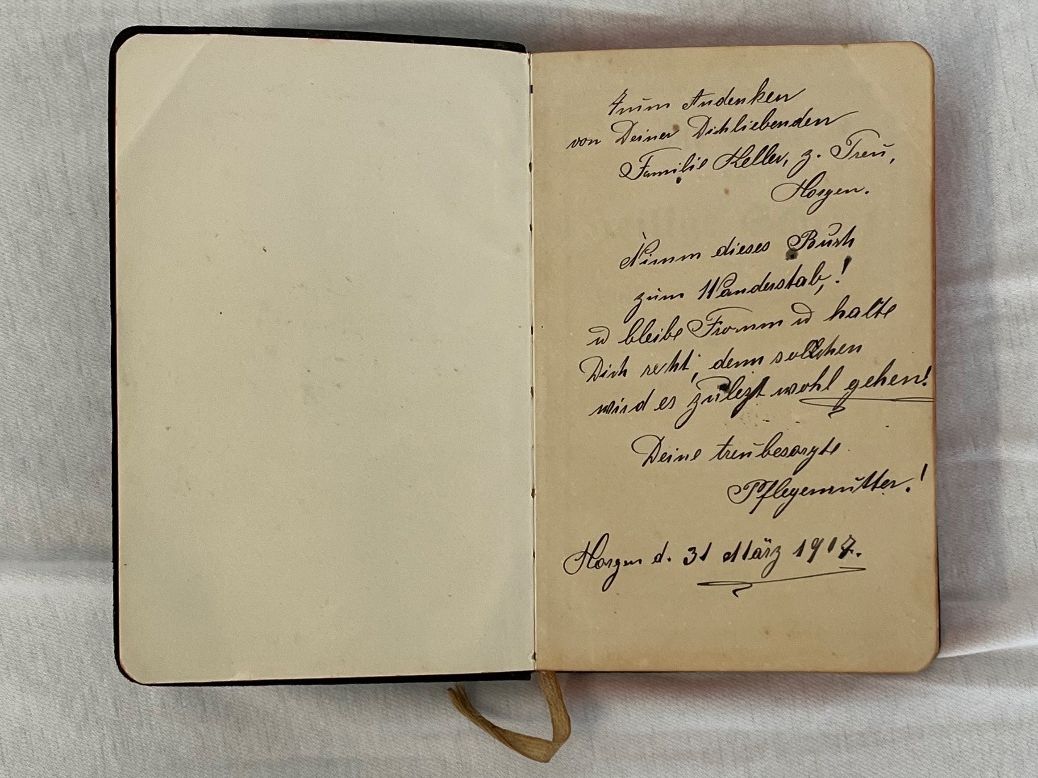 Zum Andenken
von Deiner Dichliebenden
Familie Keller, z. Treu,
Horgen.
Nimm dieses Buch
zum Wanderstab,!
u bleibe Fromm u halte
Dich recht, denn solchen
wird es zulezt wohl gehen!
Deine treubesorgte
Pflegemutter.!
Horgen d. 31 März 1917.